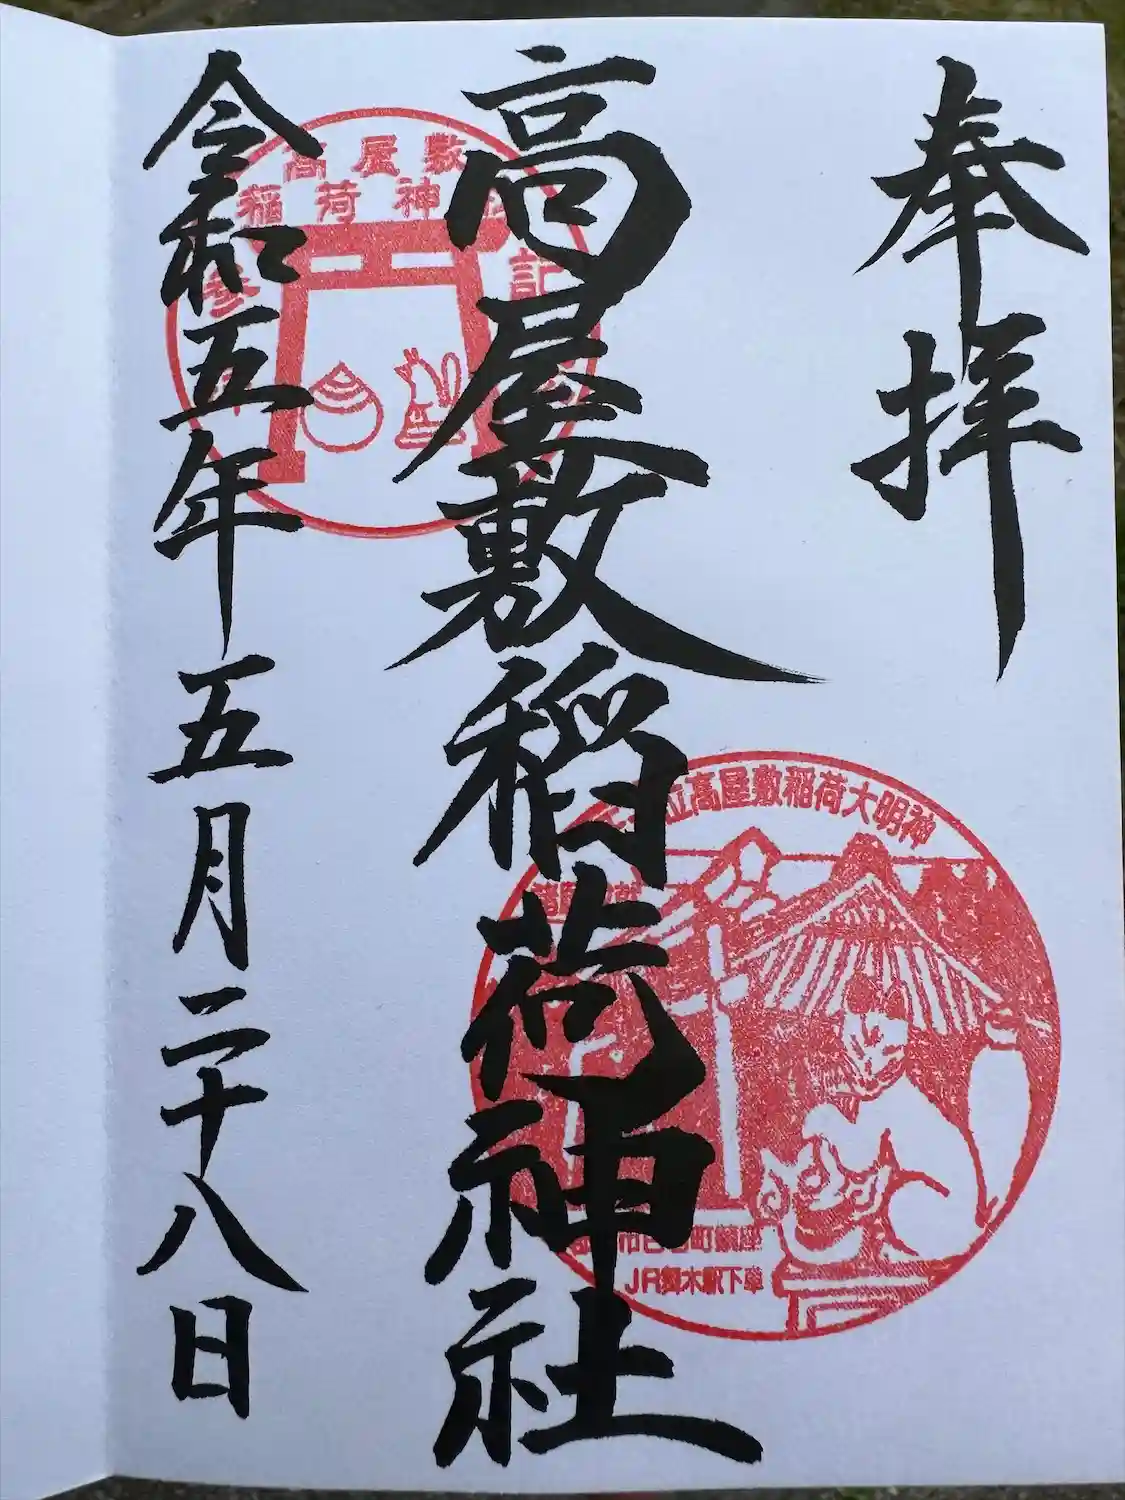 奉拝
高屋敷稲荷神社
令和五年五月二十八日
高屋敷
稲荷神
参
記
位高屋敷稲荷大明神
町鎮座
JR舞木駅下車